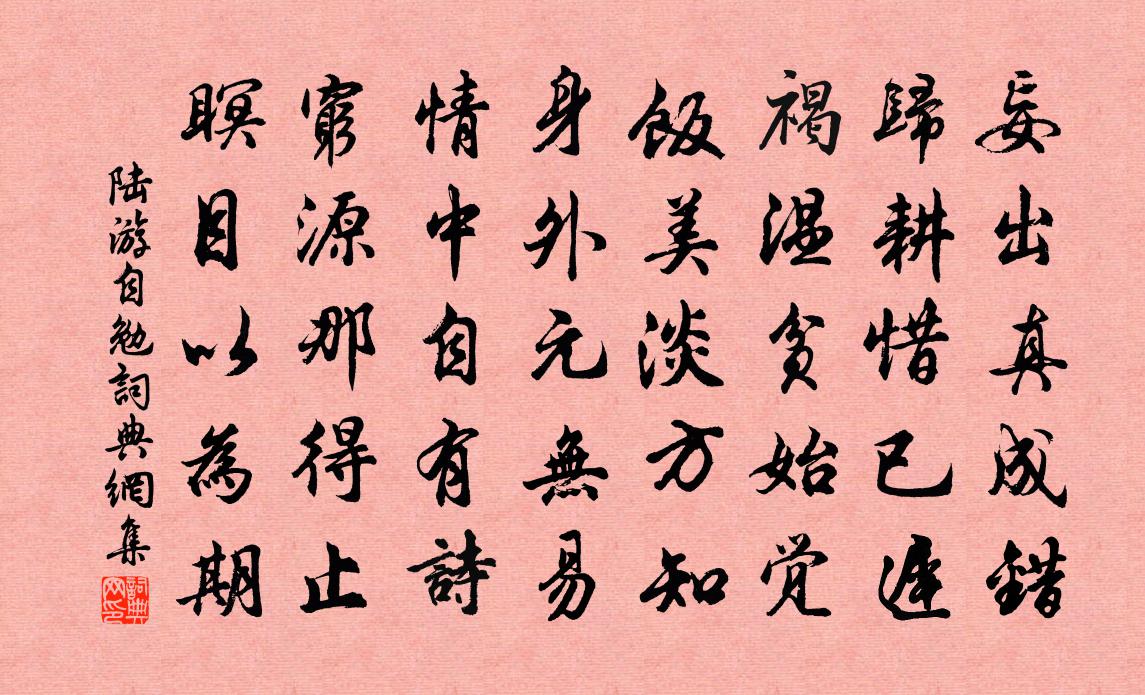 妄出真成錯
歸耕惜已遲
褐温貧始覚
飯美淡方知
身外元無易
情中自有詩
窮源那得止
瞑目以為期
陆游自勉詞典網集
詞典網印